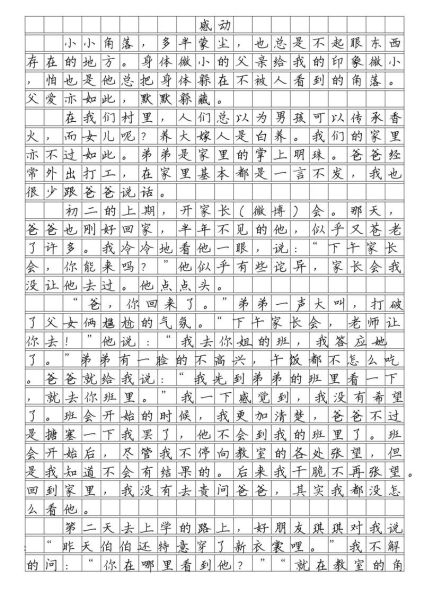 感动
小小角落，多半蒙尘，也总是不起眼东西
存在的地方。身体微小的父亲给我的印象微小
，怕也是他总把身体躲在不被人看到的角落。
父爱亦如此，默默躲藏。
在我们村里，人们总以为男孩可以传承香
火，而女儿呢？养大嫁人是白养。我们的家里
亦不过如此。弟弟是家里的掌上明珠。爸爸经
常外出打工，在家里基本都是一言不发，我也
很少跟爸爸说话。
初二的上期，开家长（微博）会。那天，
爸爸也刚好回家，半年不见的他，似乎又苍老
了许多。我冷冷地看他一眼，说：“下午家长
会，你能来吗？”他似乎有些诧异，家长会我
没让他去过。他点点头。
“爸，你回来了。”弟弟一声大叫，打破
了父女俩尴尬的气氛。“下午家长会，老师让
你去！”他说：“我去你姐的班，我答应她
了。”弟弟有一脸的不高兴，午饭都不怎么吃
。爸爸就给我说：“我先到弟弟的班里看一下
，就去你班里。”我一下感觉到，我没有希望
了。班会开始的时候，我更加清楚，爸爸不过
是搪塞一下我罢了，他不会到我的班里了。班
会开始后，尽管我不停向教室的各处张望，但
是我知道不会有结果的。后来我干脆不再张望。
回到家里，我没有去责问爸爸，其实我都没怎
么看他。
第二天去上学的路上，好朋友琪琪对我说
：“昨天伯伯还特意穿了新衣裳哩。”我不解
的问：“你在哪里看到他？”“就在教室的角